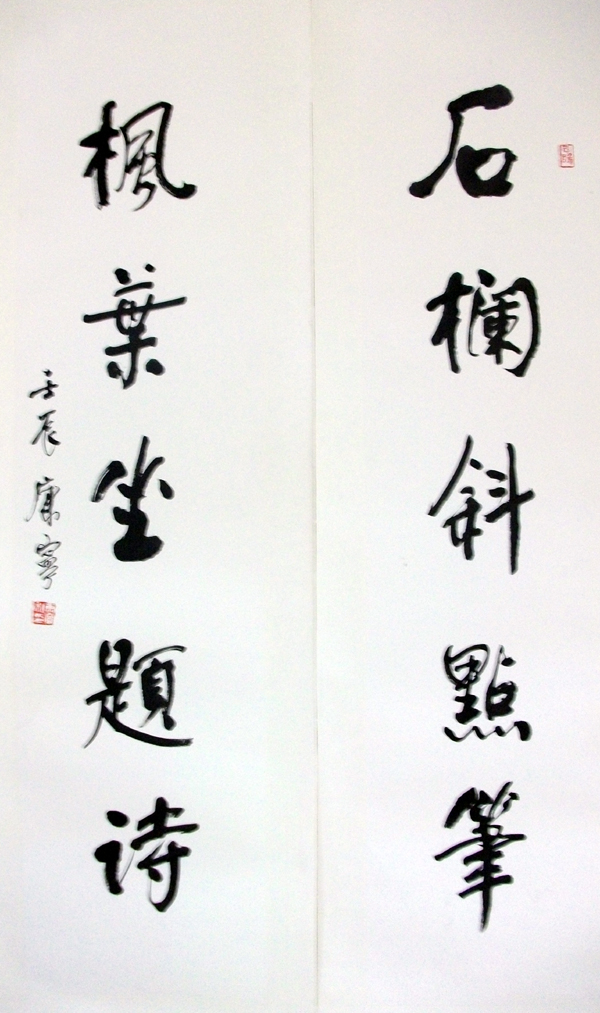 石欄斜點筆
楓葉坐題詩
壬辰康寧